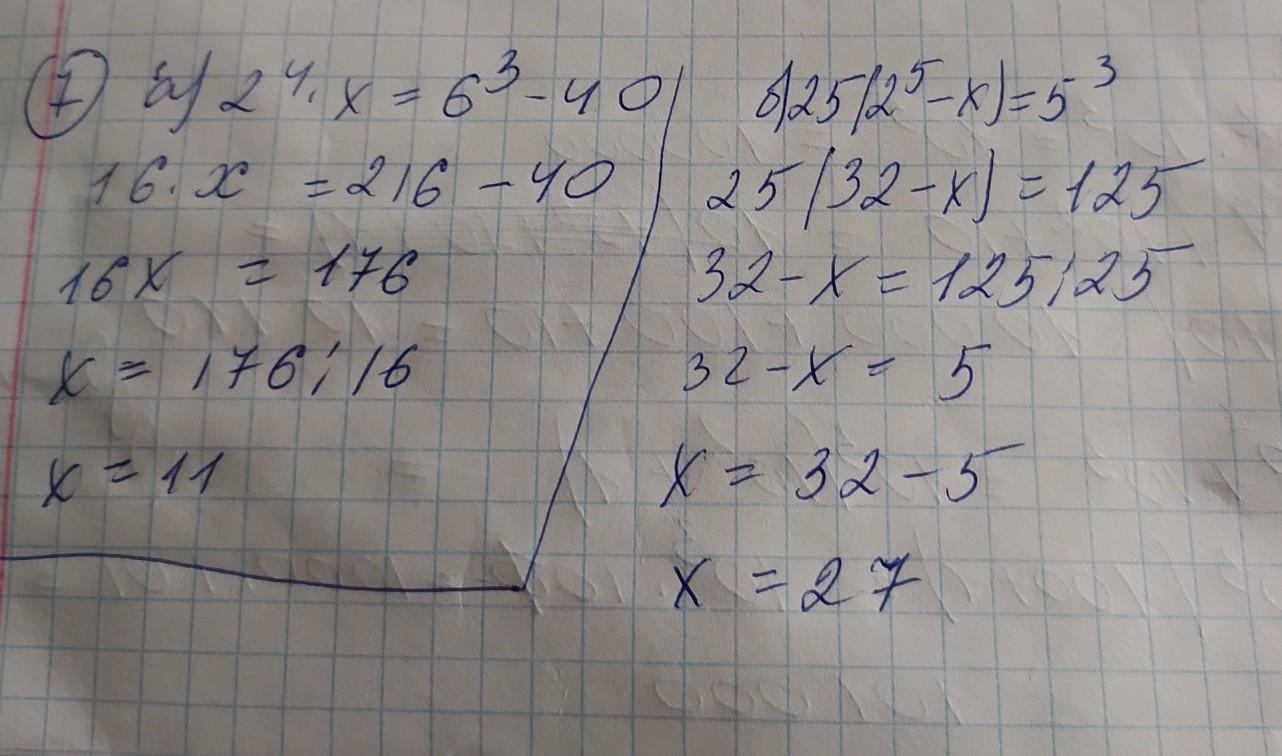 7 а) 2⁴·x = 6³ - 40
16·x = 216 - 40
16x = 176
x = 176 : 16
x = 11
б) 25(2⁵ - x) = 5³
25(32 - x) = 125
32 - x = 125 : 25
32 - x = 5
x = 32 - 5
x = 27